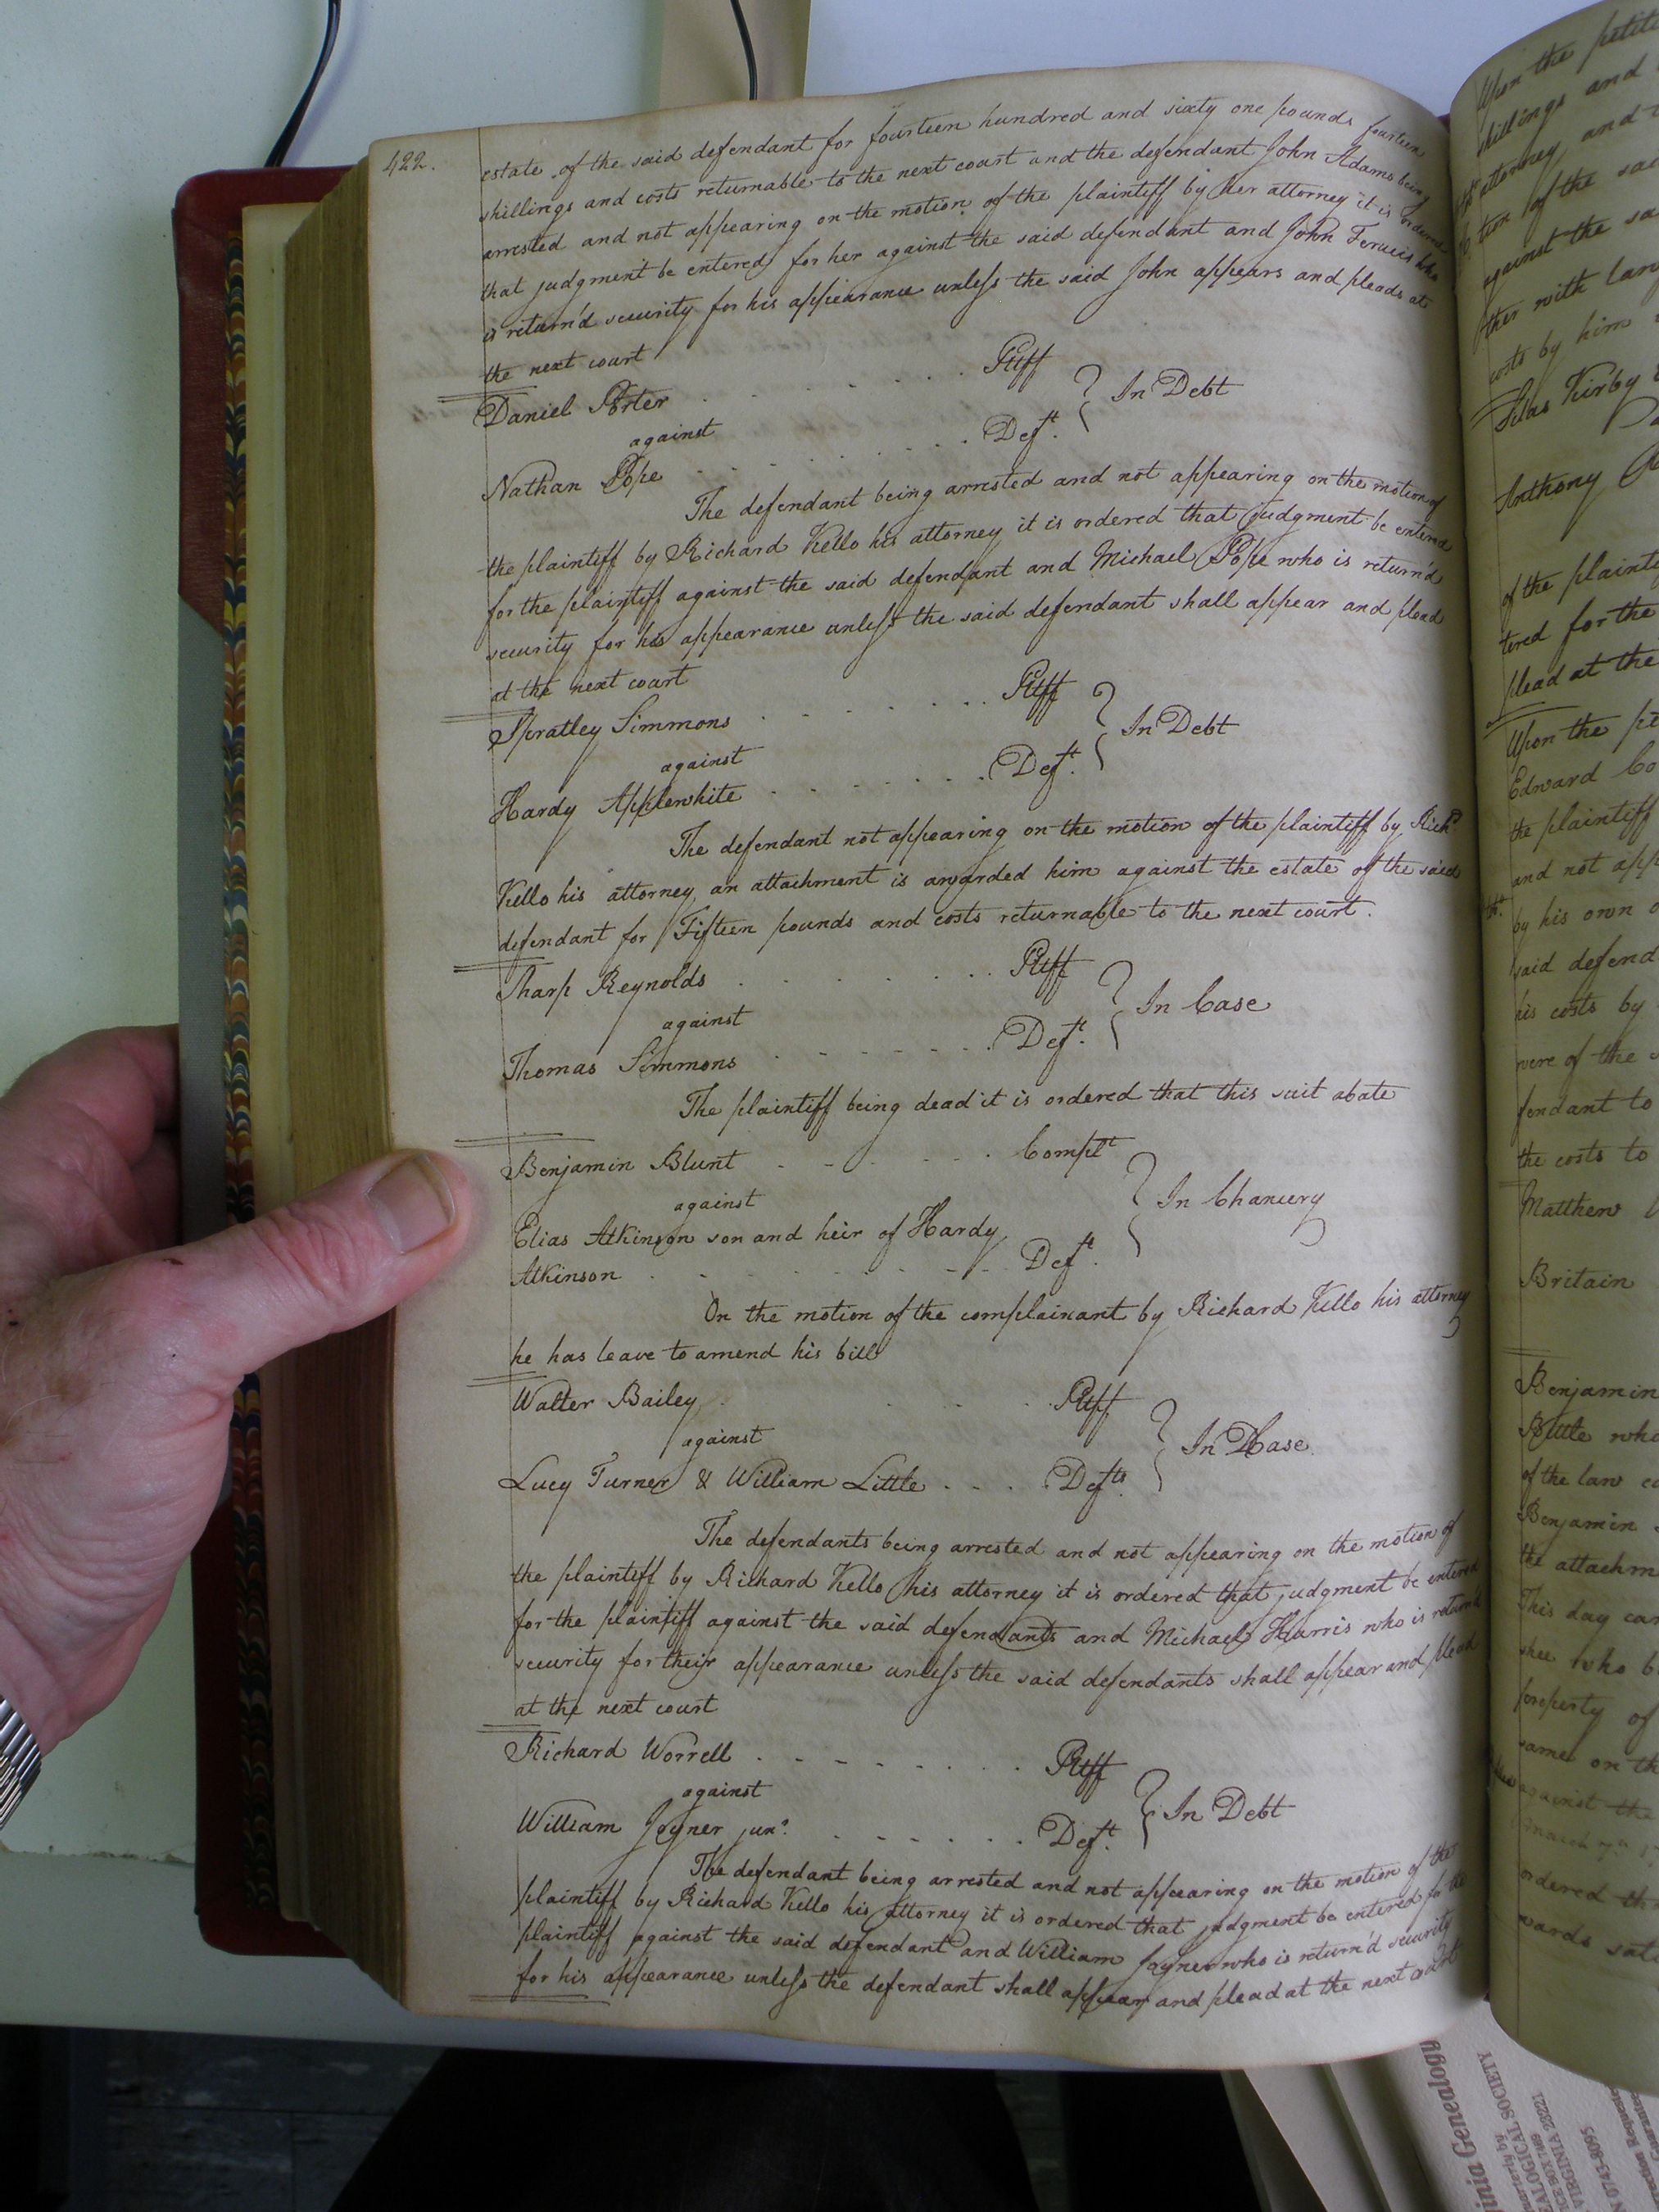 422.
estate of the said defendant for fourteen hundred and sixty one pounds fourteen
shillings and costs returnable to the next court and the defendant John Adams being
arrested and not appearing on the motion of the plaintiff by her attorney it is ordered
that judgment be entered for her against the said defendant and John who
is return'd security for his appearance unless the said John appears and pleads at
the next court
Daniel Porter . . . . . . . Pltff
against } In Debt
Nathan Pope . . . . . . . Deft.
The defendant being arrested and not appearing on the motion of
the plaintiff by Richard Kello his attorney it is ordered that judgment be entered
for the plaintiff against the said defendant and Michael Pope who is return'd
security for his appearance unless the said defendant shall appear and plead
at the next court
Spratley Simmons . . . . . . . Pltff
against } In Debt
Hardy Applewhite . . . . . . . Deft.
The defendant not appearing on the motion of the plaintiff by Richd.
Kello his attorney an attachment is awarded him against the estate of the said
defendant for Fifteen pounds and costs returnable to the next court.
Tharp Reynolds . . . . . . . Pltff
against } In Case
Thomas Simmons . . . . . . . Deft.
The plaintiff being dead it is ordered that this suit abate
Benjamin Blunt . . . . . . Complt
against } In Chancery
Elias Atkinson son and heir of Hardy
Atkinson . . . . . . . . Deft.
On the motion of the complainant by Richard Kello his attorney
he has leave to amend his bill
Walter Bailey . . . . Pltff
against } In Case.
Lucy Turner & William Little . . . Defts.
The defendants being arrested and not appearing on the motion of
the plaintiff by Richard Kello his attorney it is ordered that judgment be entered
for the plaintiff against the said defendants and Michael Harris who is return'd
security for their appearance unless the said defendants shall appear and plead
at the next court
Richard Worrell . . . . . . . Pltff
against } In Debt
William Joyner junr. . . . . . . Deft.
The defendant being arrested and not appearing on the motion of the
plaintiff by Richard Kello his attorney it is ordered that judgment be entered for the
plaintiff against the said defendant and William Joyner who is return'd security
for his appearance unless the defendant shall appear and plead at the next court
Upon the
shillings and
attorney and
tion of the
against the
ther with
costs by him
Silas Kirby
Anthony
of the
tered for the
plead at the
Upon the
Edward
the plaintiff
and not
by his own
said
his costs by
were of the
fendant to
the costs to
Matthew
Britain
Benjamin
Little who
of the law
Benjamin
the
This day
who
property of
same on the
against the
March
ordered
wards
Genealogy
SOCIETY
BOX 7469
VIRGINIA 23221
0743-8095